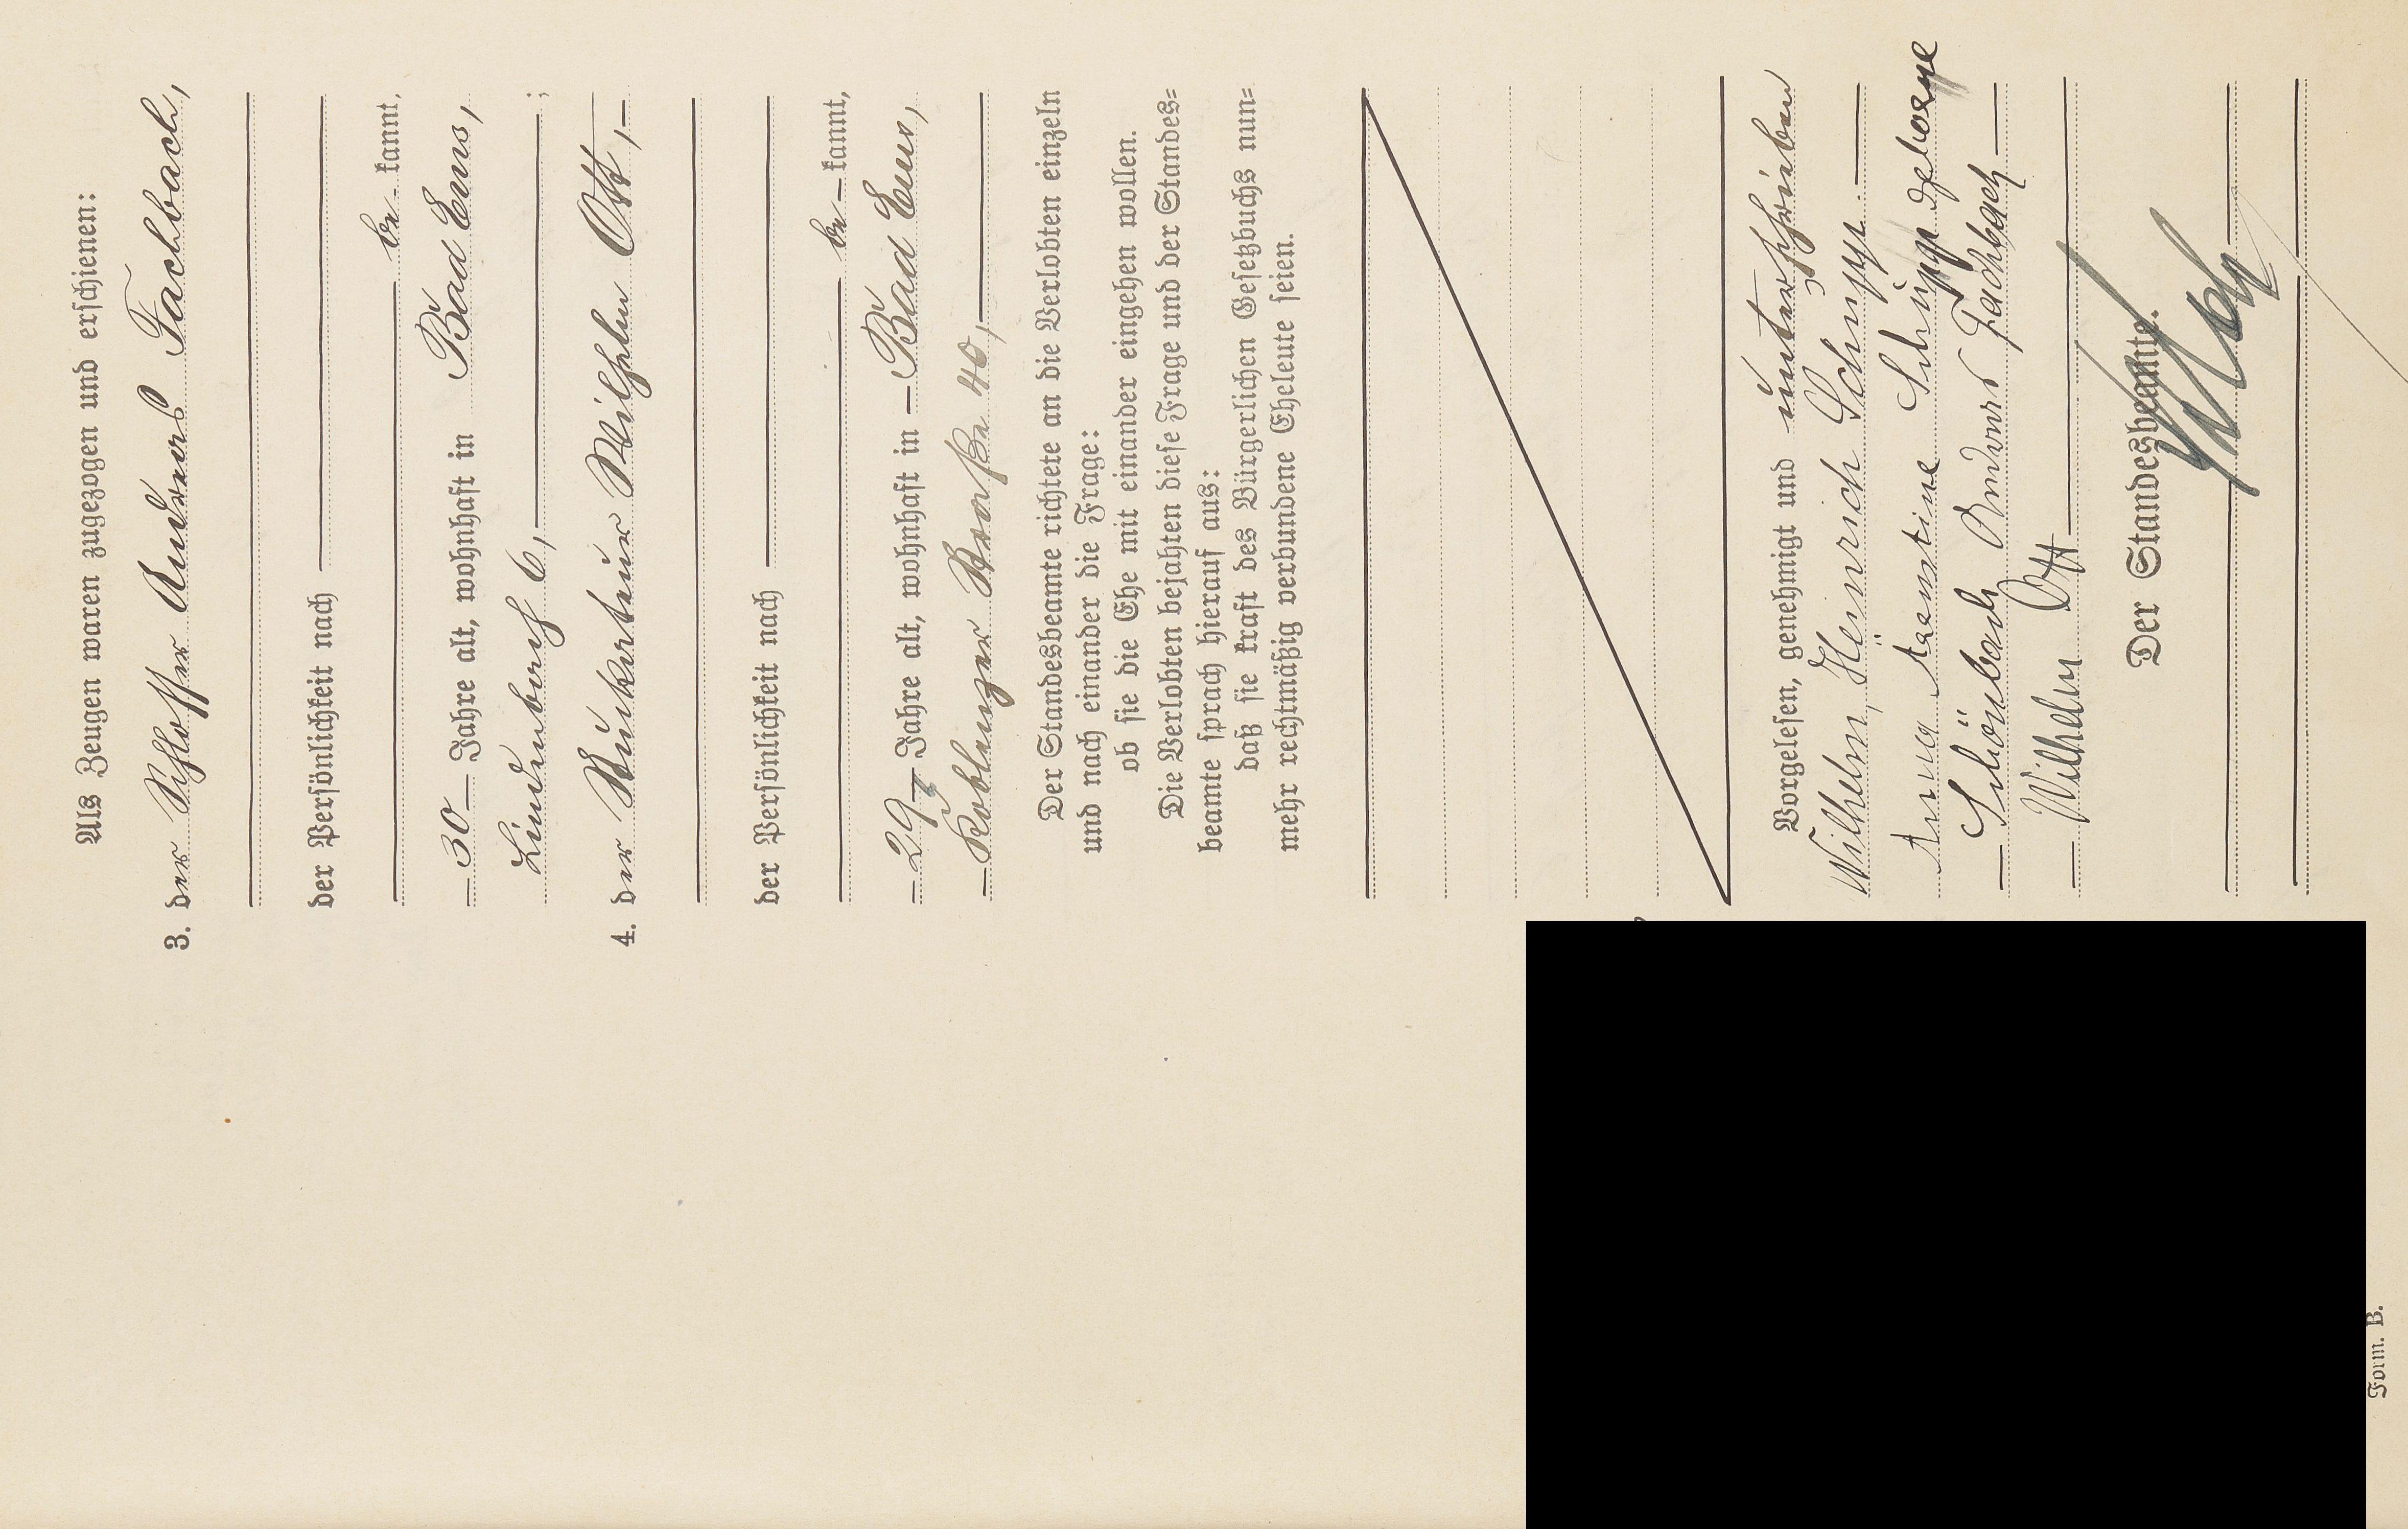 Als Zeugen waren zugezogen und erschienen:
3. der Schlosser Andreas Fachbach,
der Persönlichkeit nach
be- kannt,
30 Jahre alt, wohnhaft in Bad Ems,
Lindenbach 6, ;
4. der Wilhelm Ott,
der Persönlichkeit nach
be- kannt,
29 Jahre alt, wohnhaft in Bad Ems,
Koblenzer Straße 40,
Der Standesbeamte richtete an die Verlobten einzeln
und nach einander die Frage:
ob sie die Ehe mit einander eingehen wollen.
Die Verlobten bejahten diese Frage und der Standes=
beamte sprach hierauf aus:
daß sie kraft des Bürgerlichen Gesetzbuchs nun=
mehr rechtmäßig verbundene Eheleute seien.
Vorgelesen, genehmigt und unterschrieben
Wilhelm, Heinrich Schupp.
Anna Schupp geborene
Schönbach Fachbach
Wilhelm Ott
Der Standesbeamte.
Form. B.